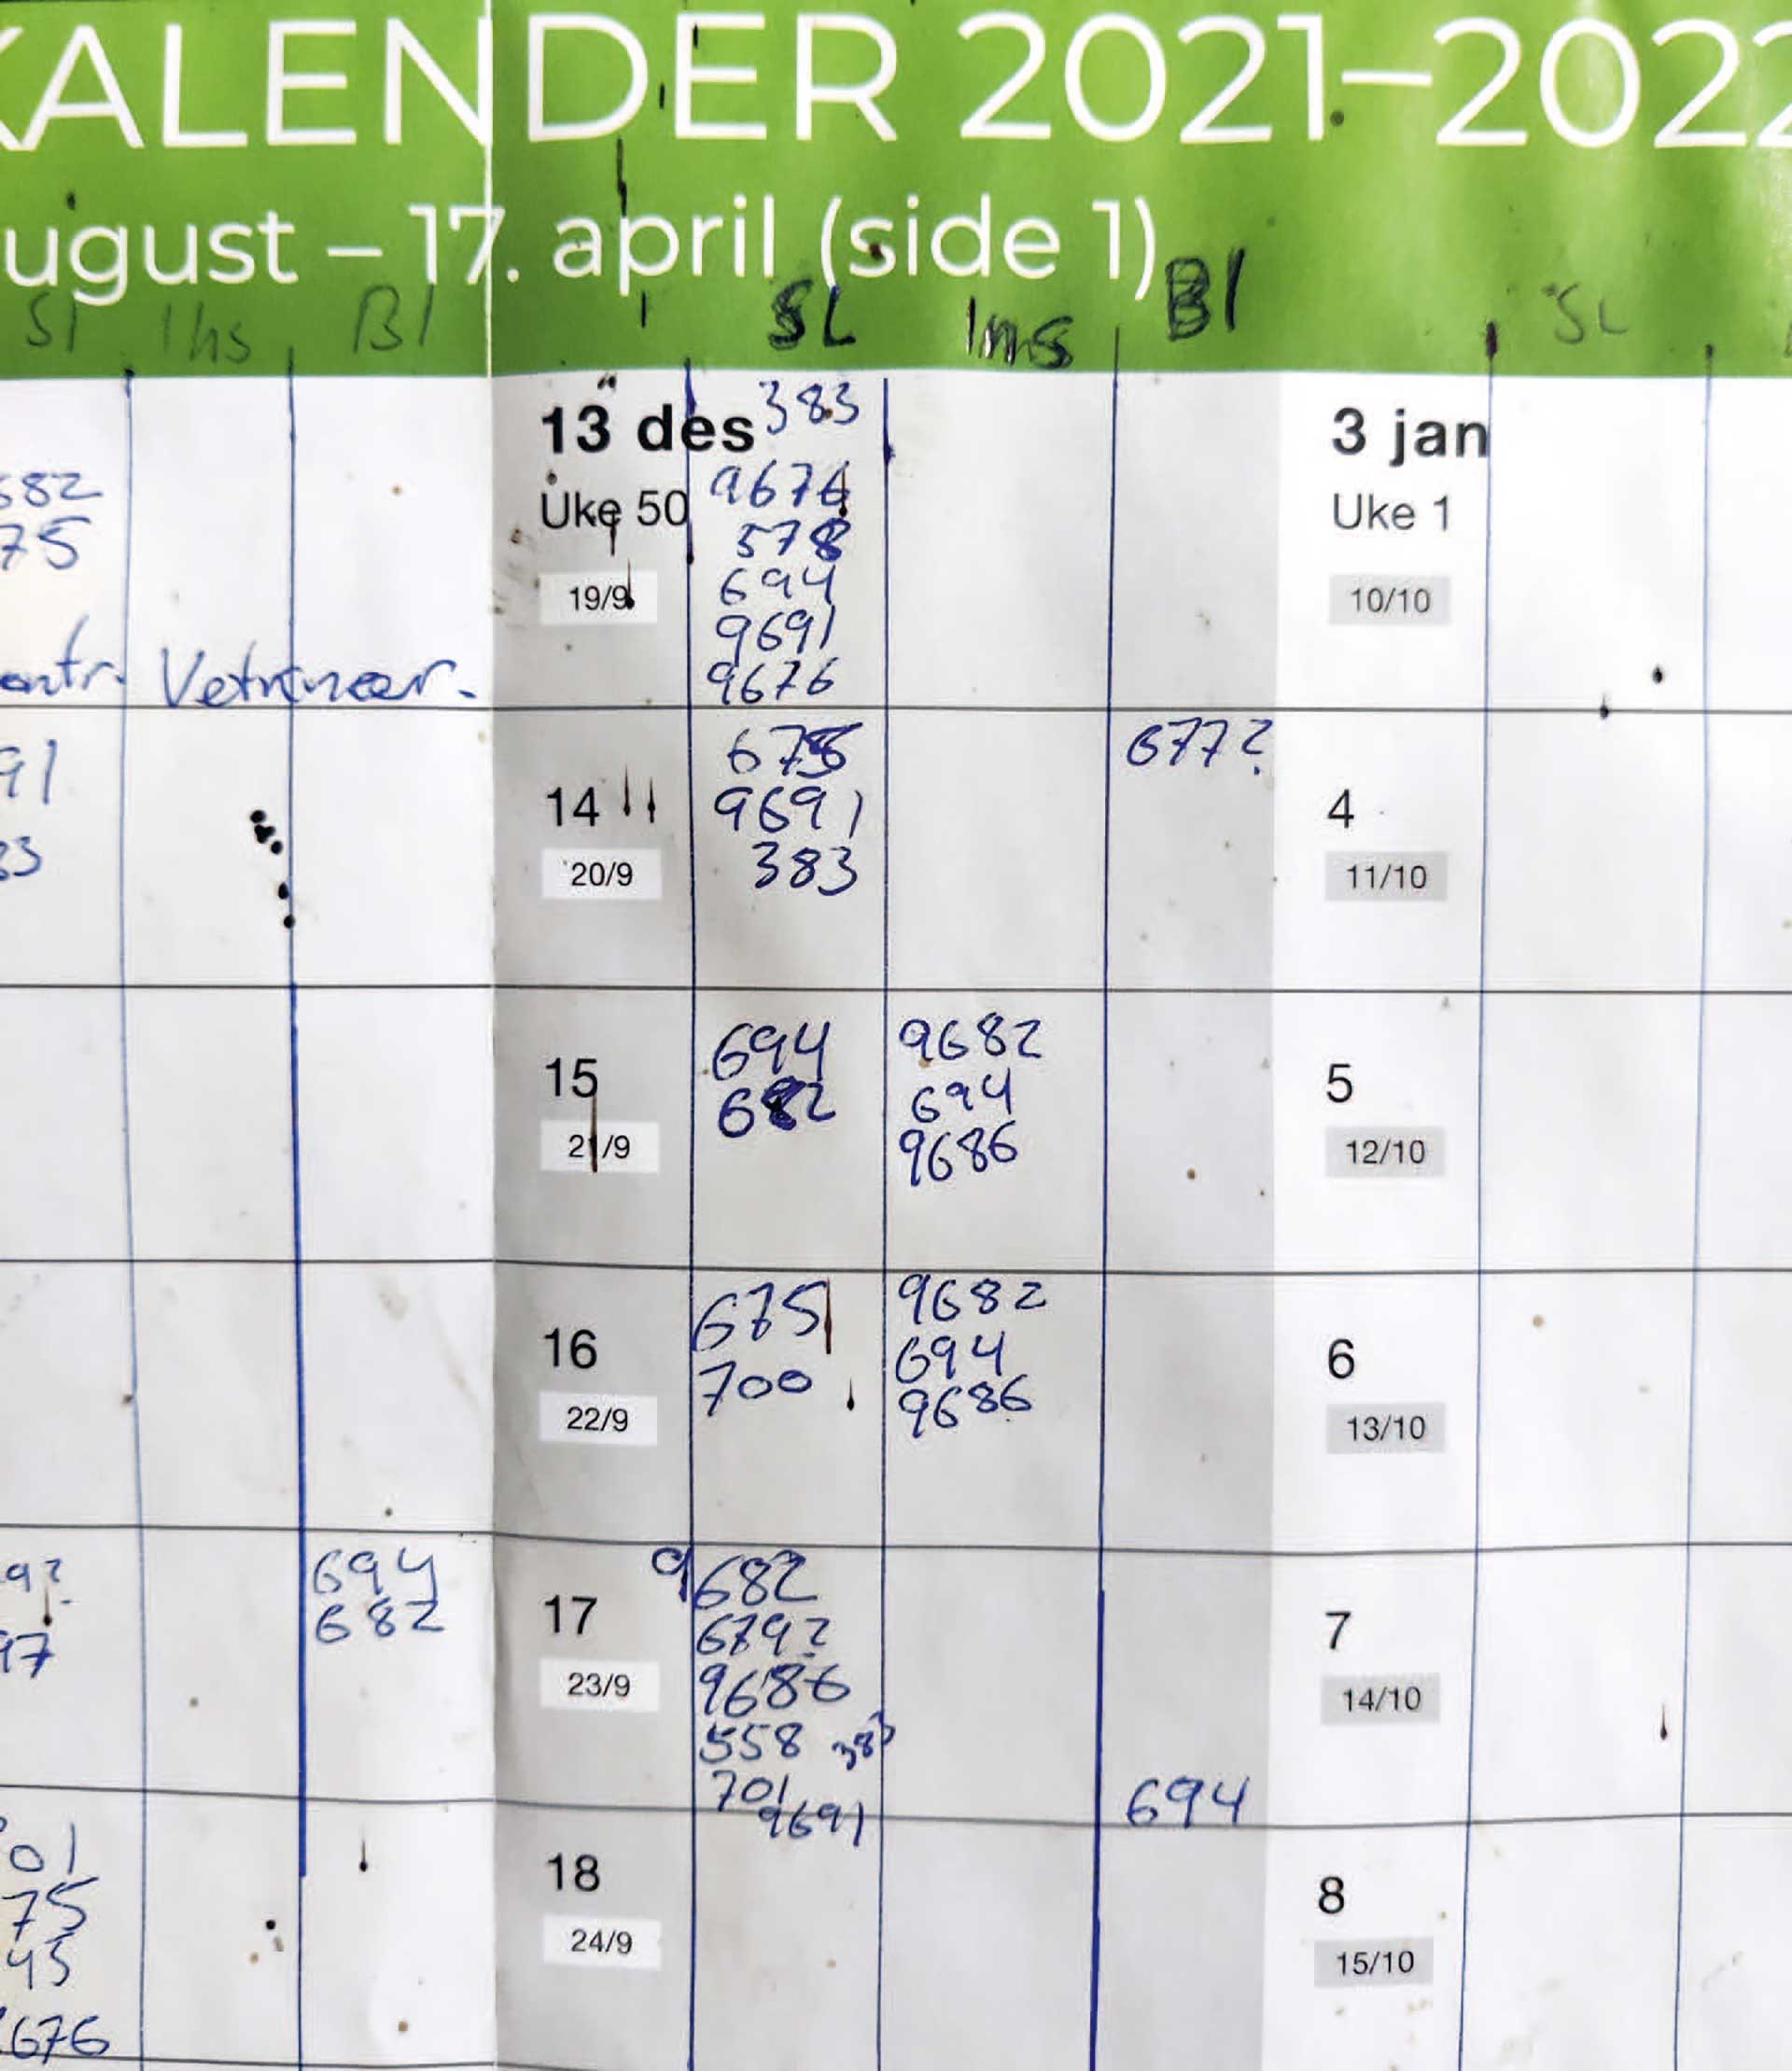 KALENDER 2021–2022
ugust – 17. april (side 1)
Sl Ins Bl SL Ins Bl SL
682
75
Vetrineer.
91
83
9?
97
694
682
01
75
45
676
13 des
Uke 50
19/9
383
9676
578
694
9691
9676
14
20/9
675
9691
383
677?
15
21/9
694
682
9682
694
9686
16
22/9
675
700
9682
694
9686
17
23/9
9682
679?
9686
558 383
701
9691
694
18
24/9
3 jan
Uke 1
10/10
4
11/10
5
12/10
6
13/10
7
14/10
8
15/10